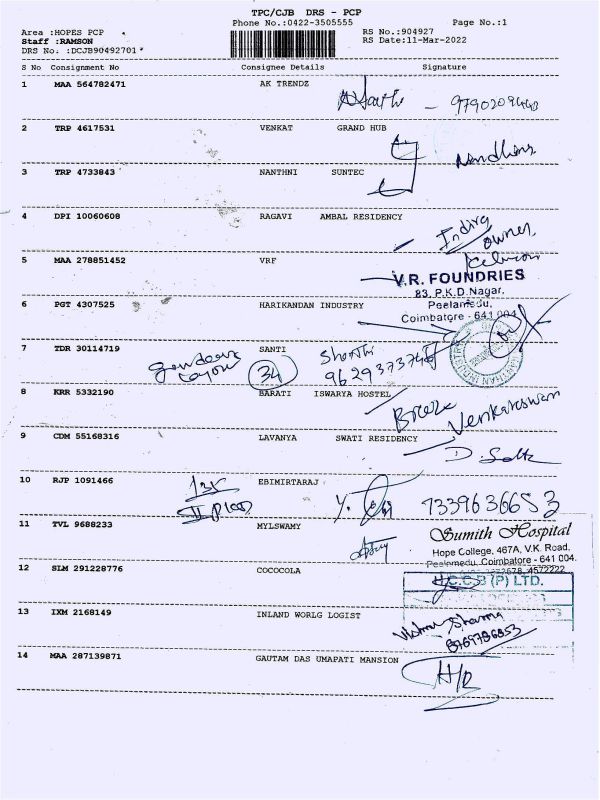 TPC/CJB DRS - PCP
Phone No.:0422-3505555 Page No.:1
Area :HOPES PCP RS No.:904927
Staff :RAMSON RS Date:11-Mar-2022
DRS No. :DCJB90492701*
S No Consignment No Consignee Details Signature
1 MAA 564782471 AK TRENDZ
- 9790209440
2 TRP 4617531 VENKAT GRAND HUB
Nandhini
3 TRP 4733843 NANTHNI SUNTEC
4 DPI 10060608 RAGAVI AMBAL RESIDENCY
Indira
owner
5 MAA 278851452 VRF
V.R. FOUNDRIES
83, P.K.D.Nagar,
Peelamedu,
6 PGT 4307525 HARIKANDAN INDUSTRY
Coimbatore - 641 004
7 TDR 30114719 SANTI
34
Shanthi
8 KRR 5332190 BARATI ISWARYA HOSTEL
Venkateswaran
9 CDM 55168316 LAVANYA SWATI RESIDENCY
10 RJP 1091466 EBIMIRTARAJ
135
7339636653
11 TVL 9688233 MYLSWAMY
Sumith Hospital
Hope College, 467A, V.K. Road,
Peelamedu, Coimbatore - 641 004.
12 SLM 291228776 COCOCOLA
4572222
C.C.B (P) LTD.
13 IXM 2168149 INLAND WORLG LOGIST
Sharma
8769786853
14 MAA 287139871 GAUTAM DAS UMAPATI MANSION